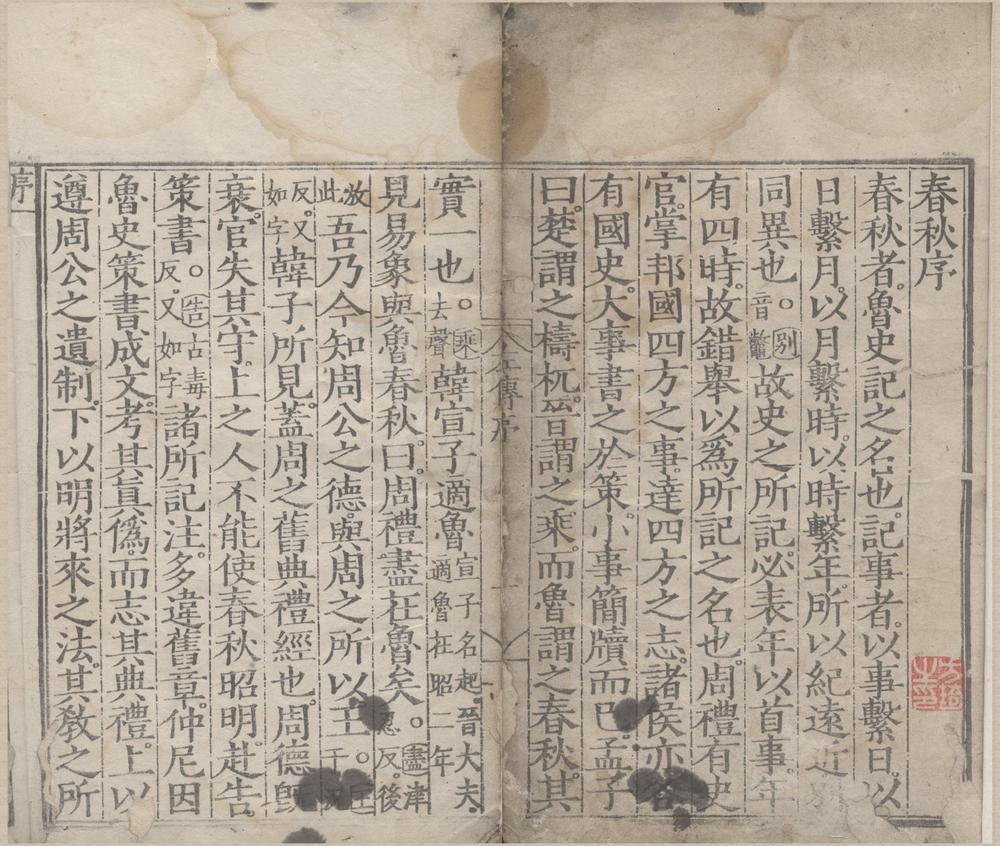 春秋序
春秋者。魯史記之名也。記事者。以事繫日。以
日繫月。以月繫時。以時繫年。所以紀遠近
同異也。別音鼈故史之所記。必表年以首事。年
有四時。故錯舉以爲所記之名也。周禮有史
官。掌邦國四方之事。達四方之志。諸侯亦
有國史。大事書之於策。小事簡牘而已。孟子
曰。楚謂之檮杌。晉謂之乘。而魯謂之春秋。其
左傳序
實一也。乘去聲韓宣子適魯宣子名起。晉大夫。適魯在昭二年
見易象與魯春秋。曰。周禮盡在魯矣。盡津忍反。後
放此吾乃今知周公之德。與周之所以王。
反。又如字韓子所見。蓋周之舊典禮經也。周德旣
衰。官失其守。上之人不能使春秋昭明。赴告
策書。告古毒反。又如字諸所記注。多違舊章。仲尼因
魯史策書成文。考其眞僞。而志其典禮。上以
遵周公之遺制。下以明將來之法。其敎之所
序一